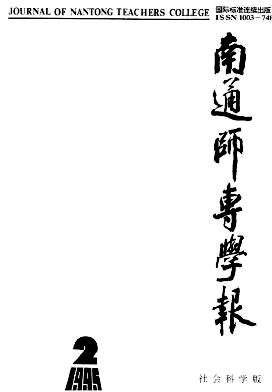 JOURNAL OF NANTONG TEACHERS COLLEGE
国际标准连续出版
ISSN 1003-74
南通師專學報
2
1995
社会科学版